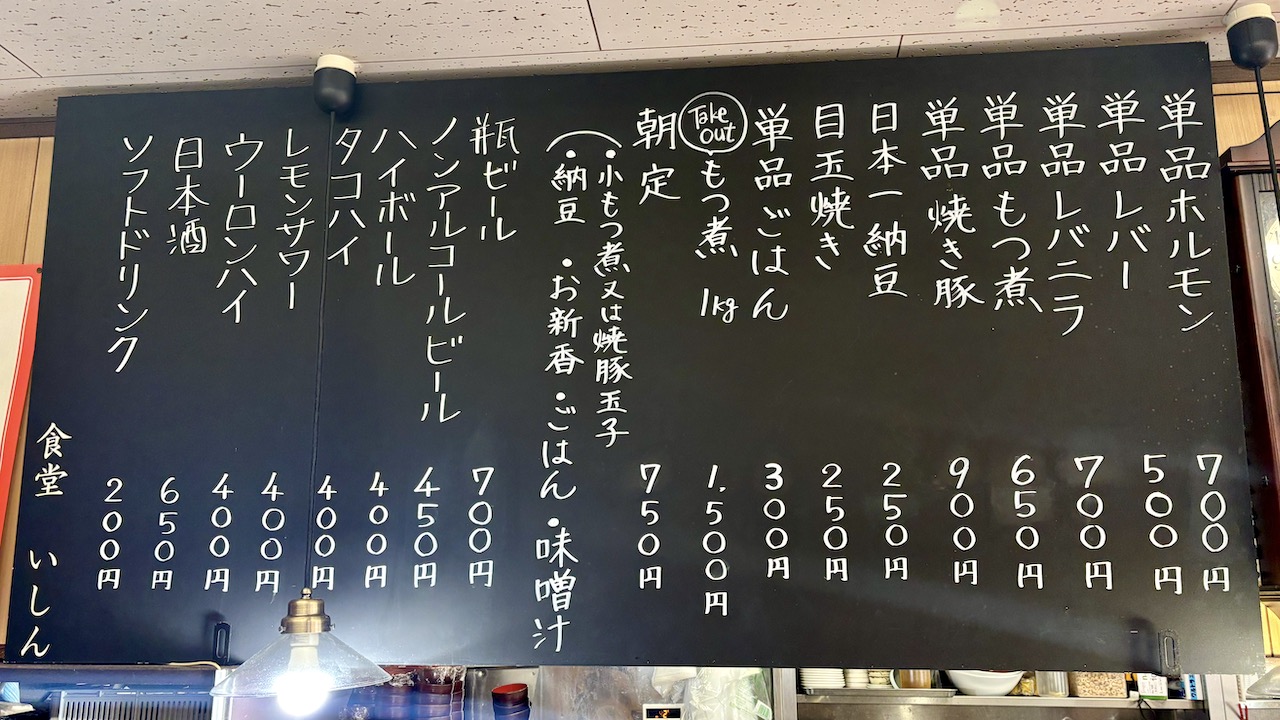 単品ホルモン 700円
単品レバー 500円
単品レバニラ 700円
単品もつ煮 650円
単品焼き豚 900円
日本一納豆 250円
目玉焼き 250円
単品ごはん 300円
Take out もつ煮 1kg 1,500円
朝定 750円
(・小もつ煮又は焼豚玉子
・納豆 ・お新香 ・ごはん ・味噌汁
瓶ビール 700円
ノンアルコールビール 450円
ハイボール 400円
タコハイ 400円
レモンサワー 400円
ウーロンハイ 400円
日本酒 650円
ソフトドリンク 200円
食堂 いしん